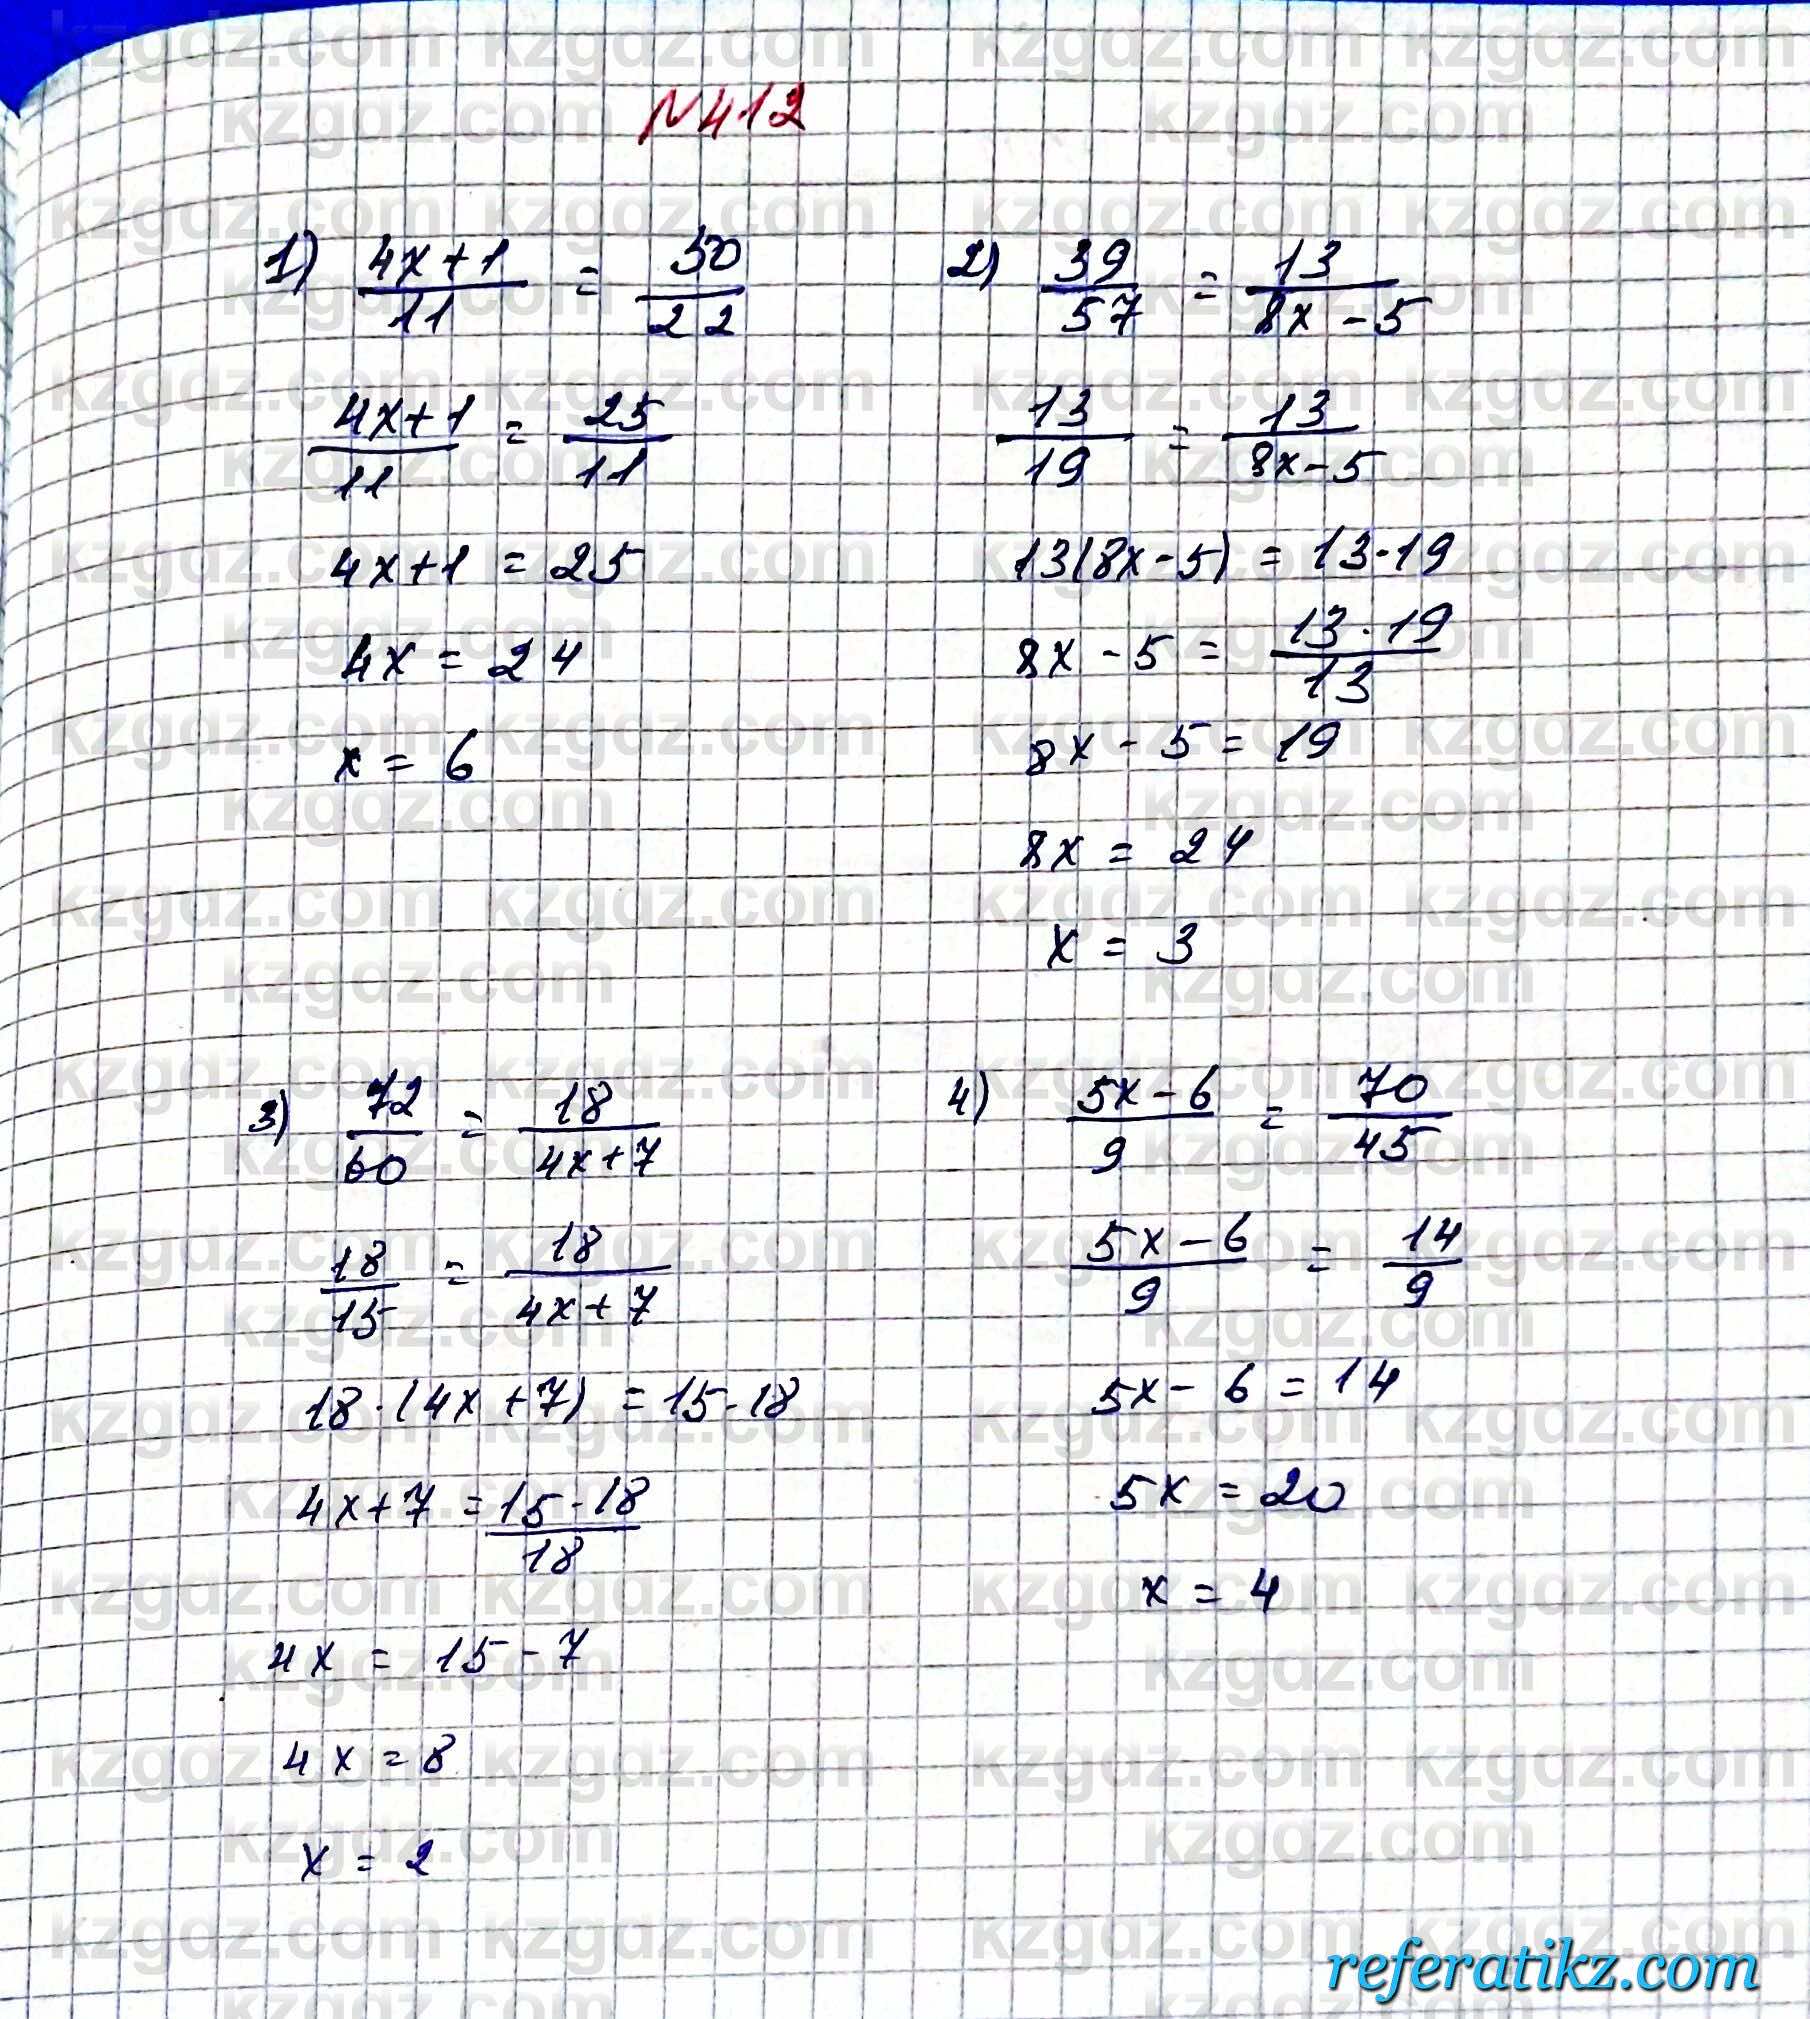 №412
1) (4x+1)/11 = 50/22
(4x+1)/11 = 25/11
4x+1 = 25
4x = 24
x = 6
2) 39/57 = 13/(8x-5)
13/19 = 13/(8x-5)
13(8x-5) = 13·19
8x-5 = (13·19)/13
8x-5 = 19
8x = 24
x = 3
3) 72/60 = 18/(4x+7)
18/15 = 18/(4x+7)
18·(4x+7) = 15·18
4x+7 = (15·18)/18
4x = 15-7
4x = 8
x = 2
4) (5x-6)/9 = 70/45
(5x-6)/9 = 14/9
5x-6 = 14
5x = 20
x = 4
kzgdz.com
referatikz.com